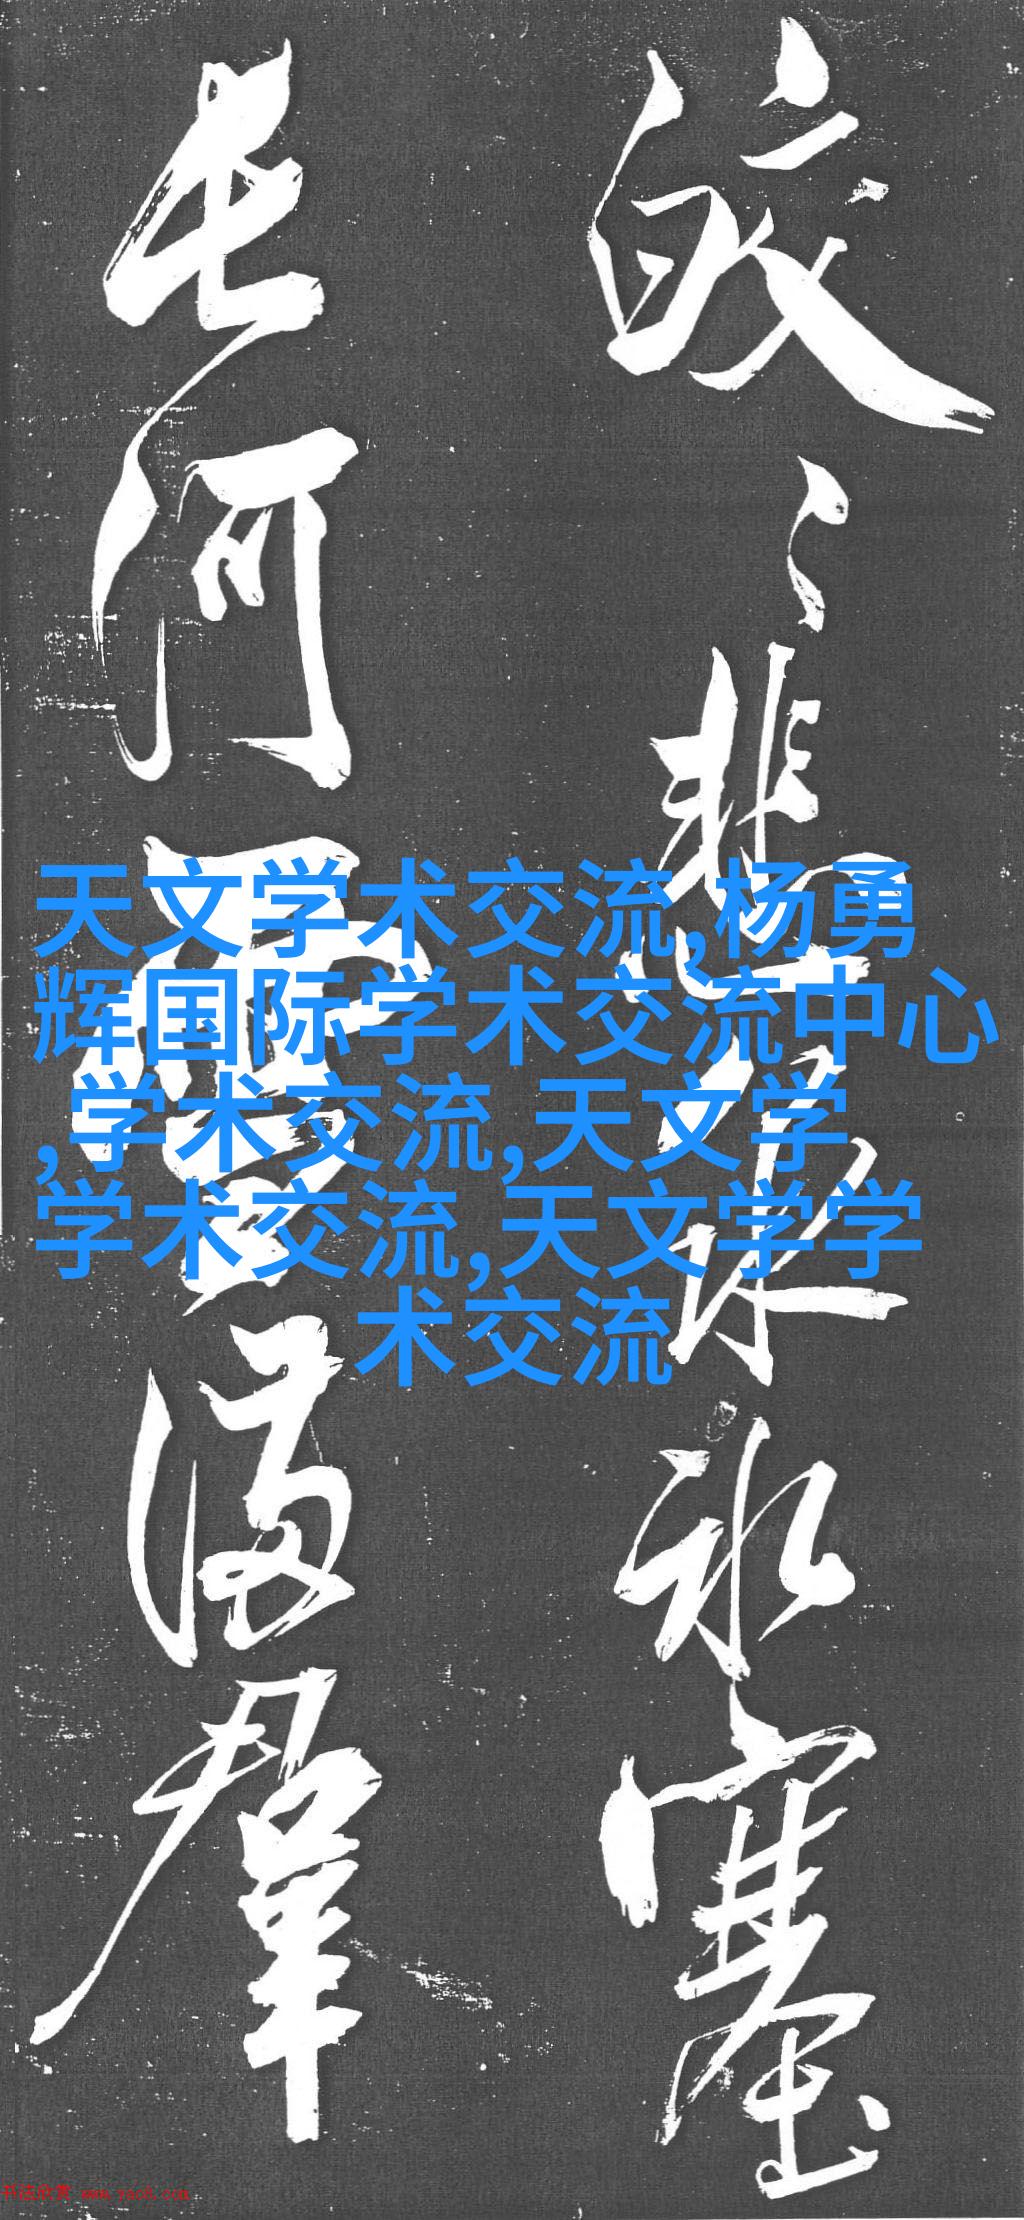 皎〻悲泉氷塞
長河雪滿羣
天文学术交流,杨勇
辉国际学术交流中心
,学术交流,天文学
学术交流,天文学学
术交流
书法欣赏 www.yac8.com